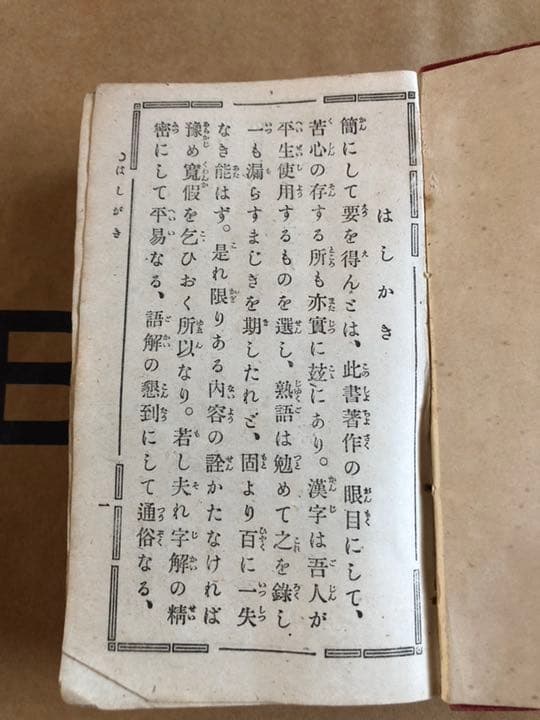 はしかき
簡にして要を得んとは、此書著作の眼目にして、
苦心の存する所も亦實に玆にあり。漢字は吾人が
平生使用するものを選し、熟語は勉めて之を錄し
一も漏らすまじきを期したれど、固より百に一失
なき能はず。是れ限りある內容の詮かたなければ
豫め寬假を乞ひおく所以なり。若し夫れ字解の精
密にして平易なる、語解の懇到にして通俗なる、
はしがき
一